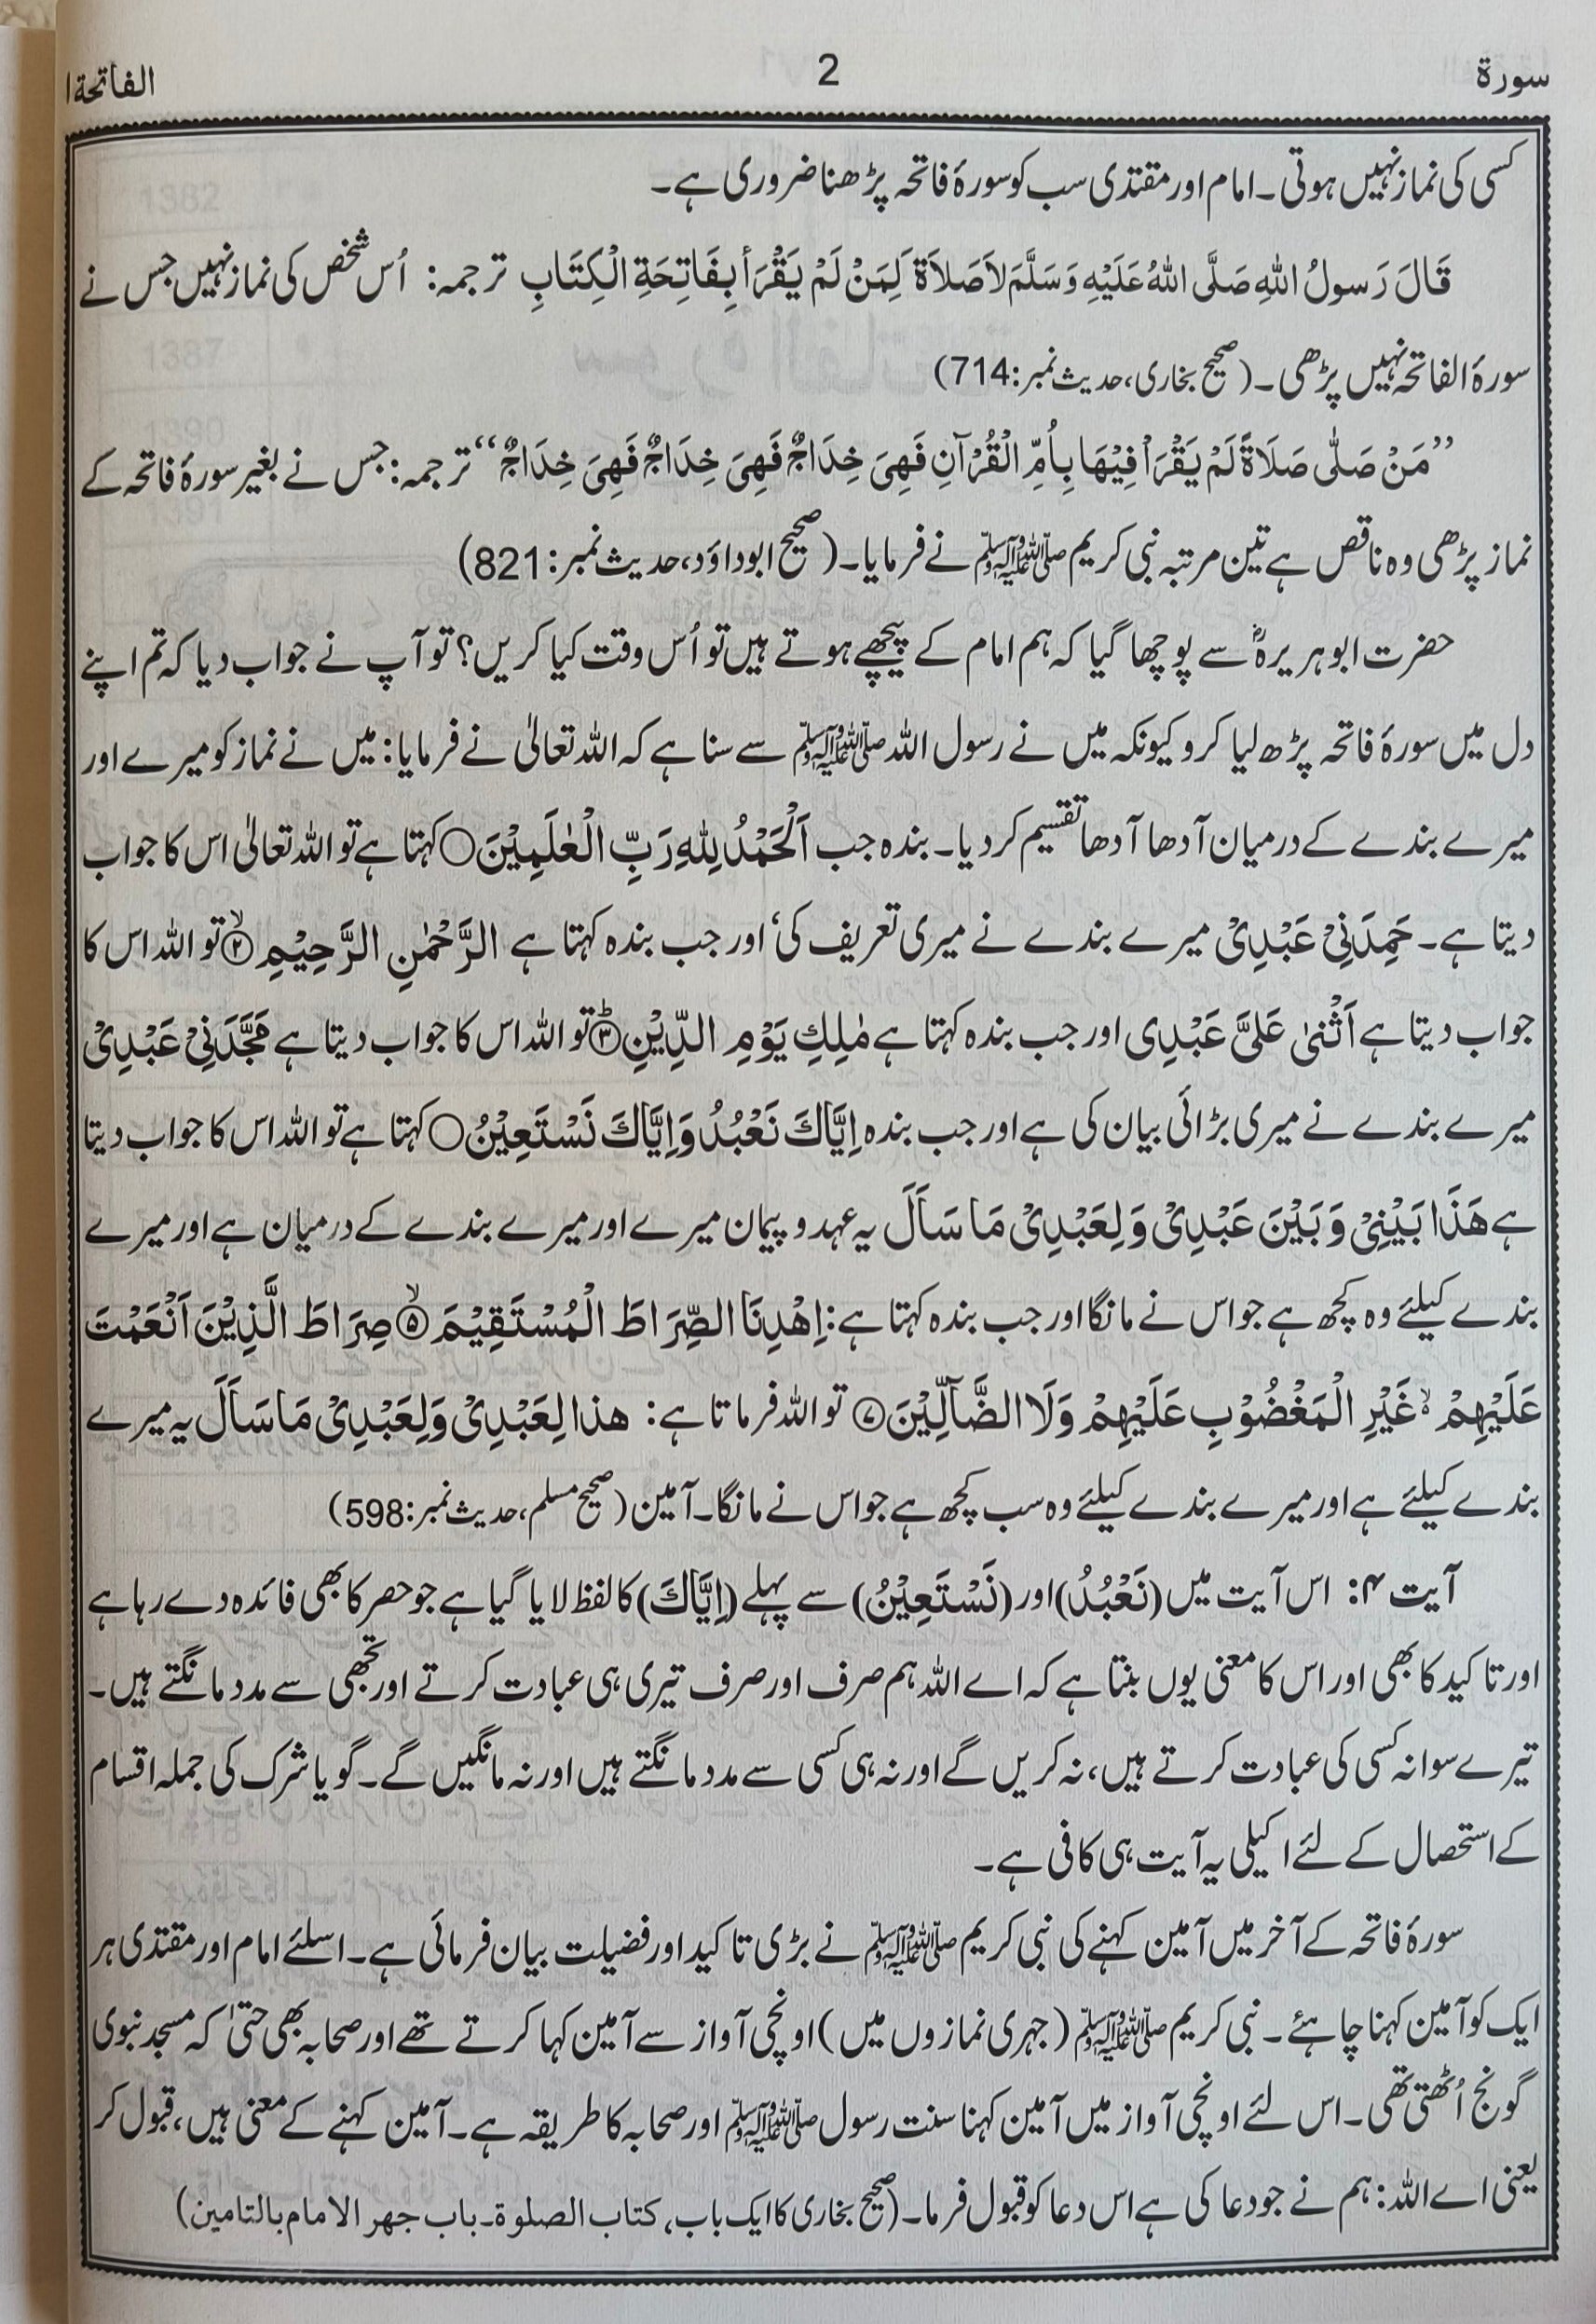 سورۃ 2 الفاتحۃ ۱
کسی کی نماز نہیں ہوتی۔ امام اور مقتدی سب کو سورۂ فاتحہ پڑھنا ضروری ہے۔
قَالَ رَسولُ اللهِ صَلَّى اللهُ عَلَيْهِ وَسَلَّمَ لاَصَلاَةَ لِمَنْ لَمْ يَقْرَأ بِفَاتِحَةِ الْكِتَابِ ترجمہ: اُس شخص کی نماز نہیں جس نے
سورۂ الفاتحہ نہیں پڑھی۔ (صحیح بخاری، حدیث نمبر: 714)
’’مَنْ صَلّٰى صَلَاةً لَمْ يَقْرَاْ فِيْهَا بِاُمِّ الْقُرْآنِ فَهِيَ خِدَاجٌ فَهِيَ خِدَاجٌ فَهِيَ خِدَاجٌ‘‘ ترجمہ: جس نے بغیر سورۂ فاتحہ کے
نماز پڑھی وہ ناقص ہے تین مرتبہ نبی کریم ﷺ نے فرمایا۔ (صحیح ابوداؤد، حدیث نمبر: 821)
حضرت ابوہریرہؓ سے پوچھا گیا کہ ہم امام کے پیچھے ہوتے ہیں تو اُس وقت کیا کریں؟ تو آپ نے جواب دیا کہ تم اپنے
دل میں سورۂ فاتحہ پڑھ لیا کرو کیونکہ میں نے رسول اللہ ﷺ سے سنا ہے کہ اللہ تعالیٰ نے فرمایا: میں نے نماز کو میرے اور
میرے بندے کے درمیان آدھا آدھا تقسیم کر دیا۔ بندہ جب اَلْحَمْدُ لِلّٰهِ رَبِّ الْعٰلَمِيْنَ○ کہتا ہے تو اللہ تعالیٰ اس کا جواب
دیتا ہے۔ حَمِدَنِيْ عَبْدِيْ میرے بندے نے میری تعریف کی‘ اور جب بندہ کہتا ہے الرَّحْمٰنِ الرَّحِيْمِ ۙ﴿۲﴾ تو اللہ اس کا
جواب دیتا ہے اَثْنٰى عَلَيَّ عَبْدِى اور جب بندہ کہتا ہے مٰلِكِ يَوْمِ الدِّيْنِ ؕ﴿۳﴾ تو اللہ اس کا جواب دیتا ہے مَجَّدَنِيْ عَبْدِيْ
میرے بندے نے میری بڑائی بیان کی ہے اور جب بندہ اِيَّاكَ نَعْبُدُ وَاِيَّاكَ نَسْتَعِيْنُ○ کہتا ہے تو اللہ اس کا جواب دیتا
ہے هَذَا بَيْنِيْ وَبَيْنَ عَبْدِيْ وَلِعَبْدِيْ مَا سَاَلَ یہ عہد و پیمان میرے اور میرے بندے کے درمیان ہے اور میرے
بندے کیلئے وہ کچھ ہے جو اس نے مانگا اور جب بندہ کہتا ہے: اِهْدِنَا الصِّرَاطَ الْمُسْتَقِيْمَ ۙ﴿۵﴾ صِرَاطَ الَّذِيْنَ اَنْعَمْتَ
عَلَيْهِمْ ۙ۬ غَيْرِ الْمَغْضُوْبِ عَلَيْهِمْ وَلَا الضَّآلِّيْنَ ﴿۷﴾ تو اللہ فرماتا ہے: هذا لِعَبْدِيْ وَلِعَبْدِيْ مَا سَاَلَ یہ میرے
بندے کیلئے ہے اور میرے بندے کیلئے وہ سب کچھ ہے جو اس نے مانگا۔ آمین (صحیح مسلم، حدیث نمبر: 598)
آیت ۴: اس آیت میں (نَعْبُدُ) اور (نَسْتَعِيْنُ) سے پہلے (اِيَّاكَ) کا لفظ لایا گیا ہے جو حصر کا بھی فائدہ دے رہا ہے
اور تاکید کا بھی اور اس کا معنی یوں بنتا ہے کہ اے اللہ ہم صرف اور صرف تیری ہی عبادت کرتے اور تجھی سے مدد مانگتے ہیں۔
تیرے سوا نہ کسی کی عبادت کرتے ہیں، نہ کریں گے اور نہ ہی کسی سے مدد مانگتے ہیں اور نہ مانگیں گے۔ گویا شرک کی جملہ اقسام
کے استحصال کے لئے اکیلی یہ آیت ہی کافی ہے۔
سورۂ فاتحہ کے آخر میں آمین کہنے کی نبی کریم ﷺ نے بڑی تاکید اور فضیلت بیان فرمائی ہے۔ اسلئے امام اور مقتدی ہر
ایک کو آمین کہنا چاہئے۔ نبی کریم ﷺ (جہری نمازوں میں) اونچی آواز سے آمین کہا کرتے تھے اور صحابہ بھی حتیٰ کہ مسجد نبوی
گونج اُٹھتی تھی۔ اس لئے اونچی آواز میں آمین کہنا سنت رسول ﷺ اور صحابہ کا طریقہ ہے۔ آمین کہنے کے معنی ہیں، قبول کر
یعنی اے اللہ: ہم نے جو دعا کی ہے اس دعا کو قبول فرما۔ (صحیح بخاری کا ایک باب، کتاب الصلوۃ۔ باب جہر الامام بالتامین)